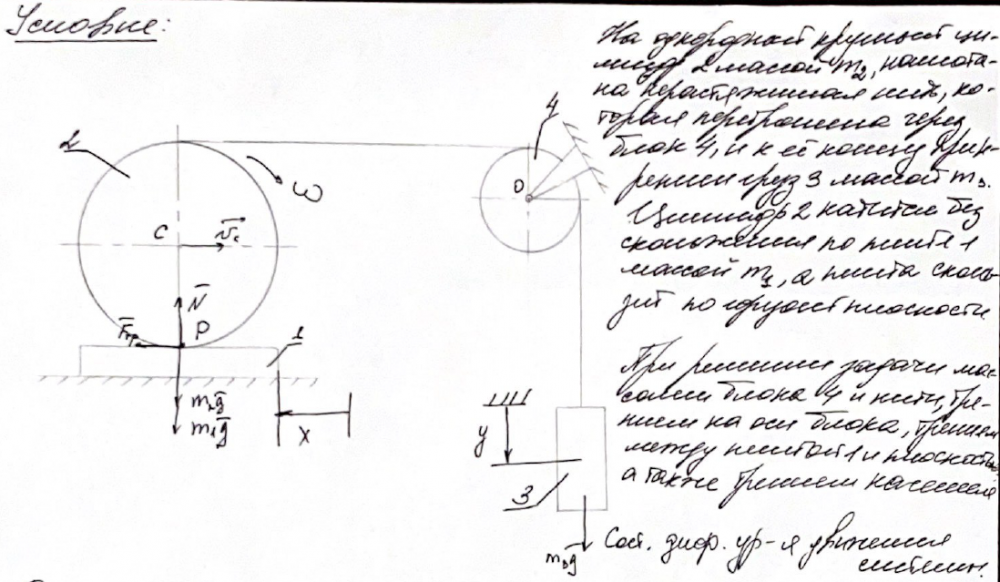 Условие:
На однородный круглый ци-
линдр 2 массой m₂, намота-
на нерастяжимая нить, ко-
торая переброшена через
блок 4, и к её концу прик-
реплен груз 3 массой m₃.
Цилиндр 2 катится без
скольжения по плите 1
массой m₁, а плита сколь-
зит по горизонт плоскости
При решении задачи мас-
сами блока 4 и нити, тре-
нием на оси блока, трением
между плитой 1 и плоскостью
а также трением качения
Сост. диф. ур-я движения
системы.
2
ω
4
O
C
v̄c
N̄
F̄тр
P
1
m₂ḡ
m₁ḡ
x
y
3
m₃ḡ